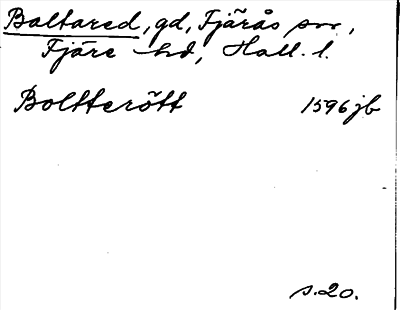 Baltared, gd, Fjärås sn,
Fjäre hd, Hall. l.
Boltterött 1596 jb
s. 20.